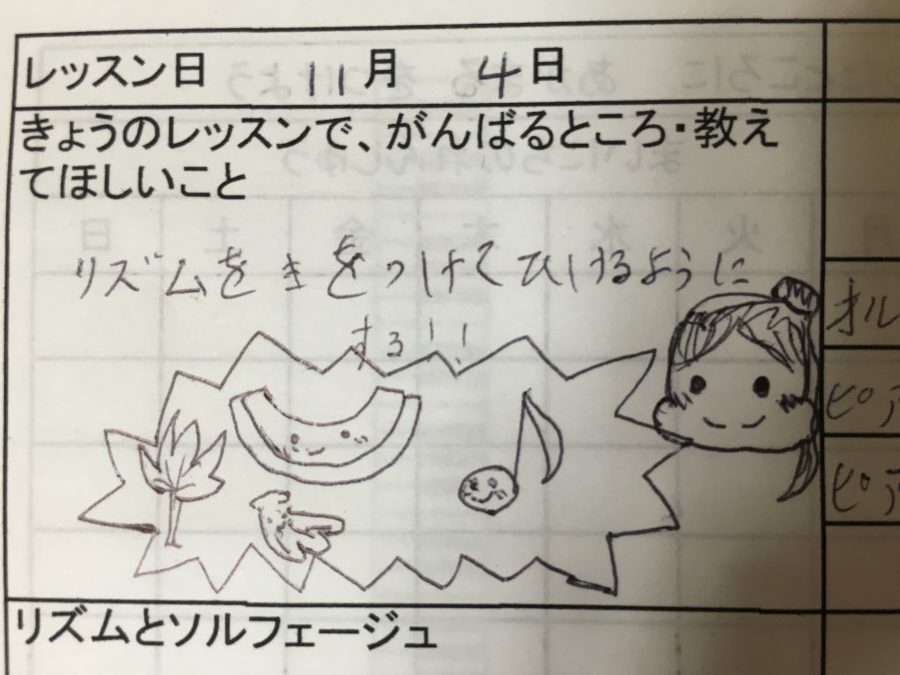 レッスン日 11月 4日
きょうのレッスンで、がんばるところ・教え
てほしいこと
リズムをきをつけてひけるように
する!!
オル
ピア
ピア
リズムとソルフェージュ